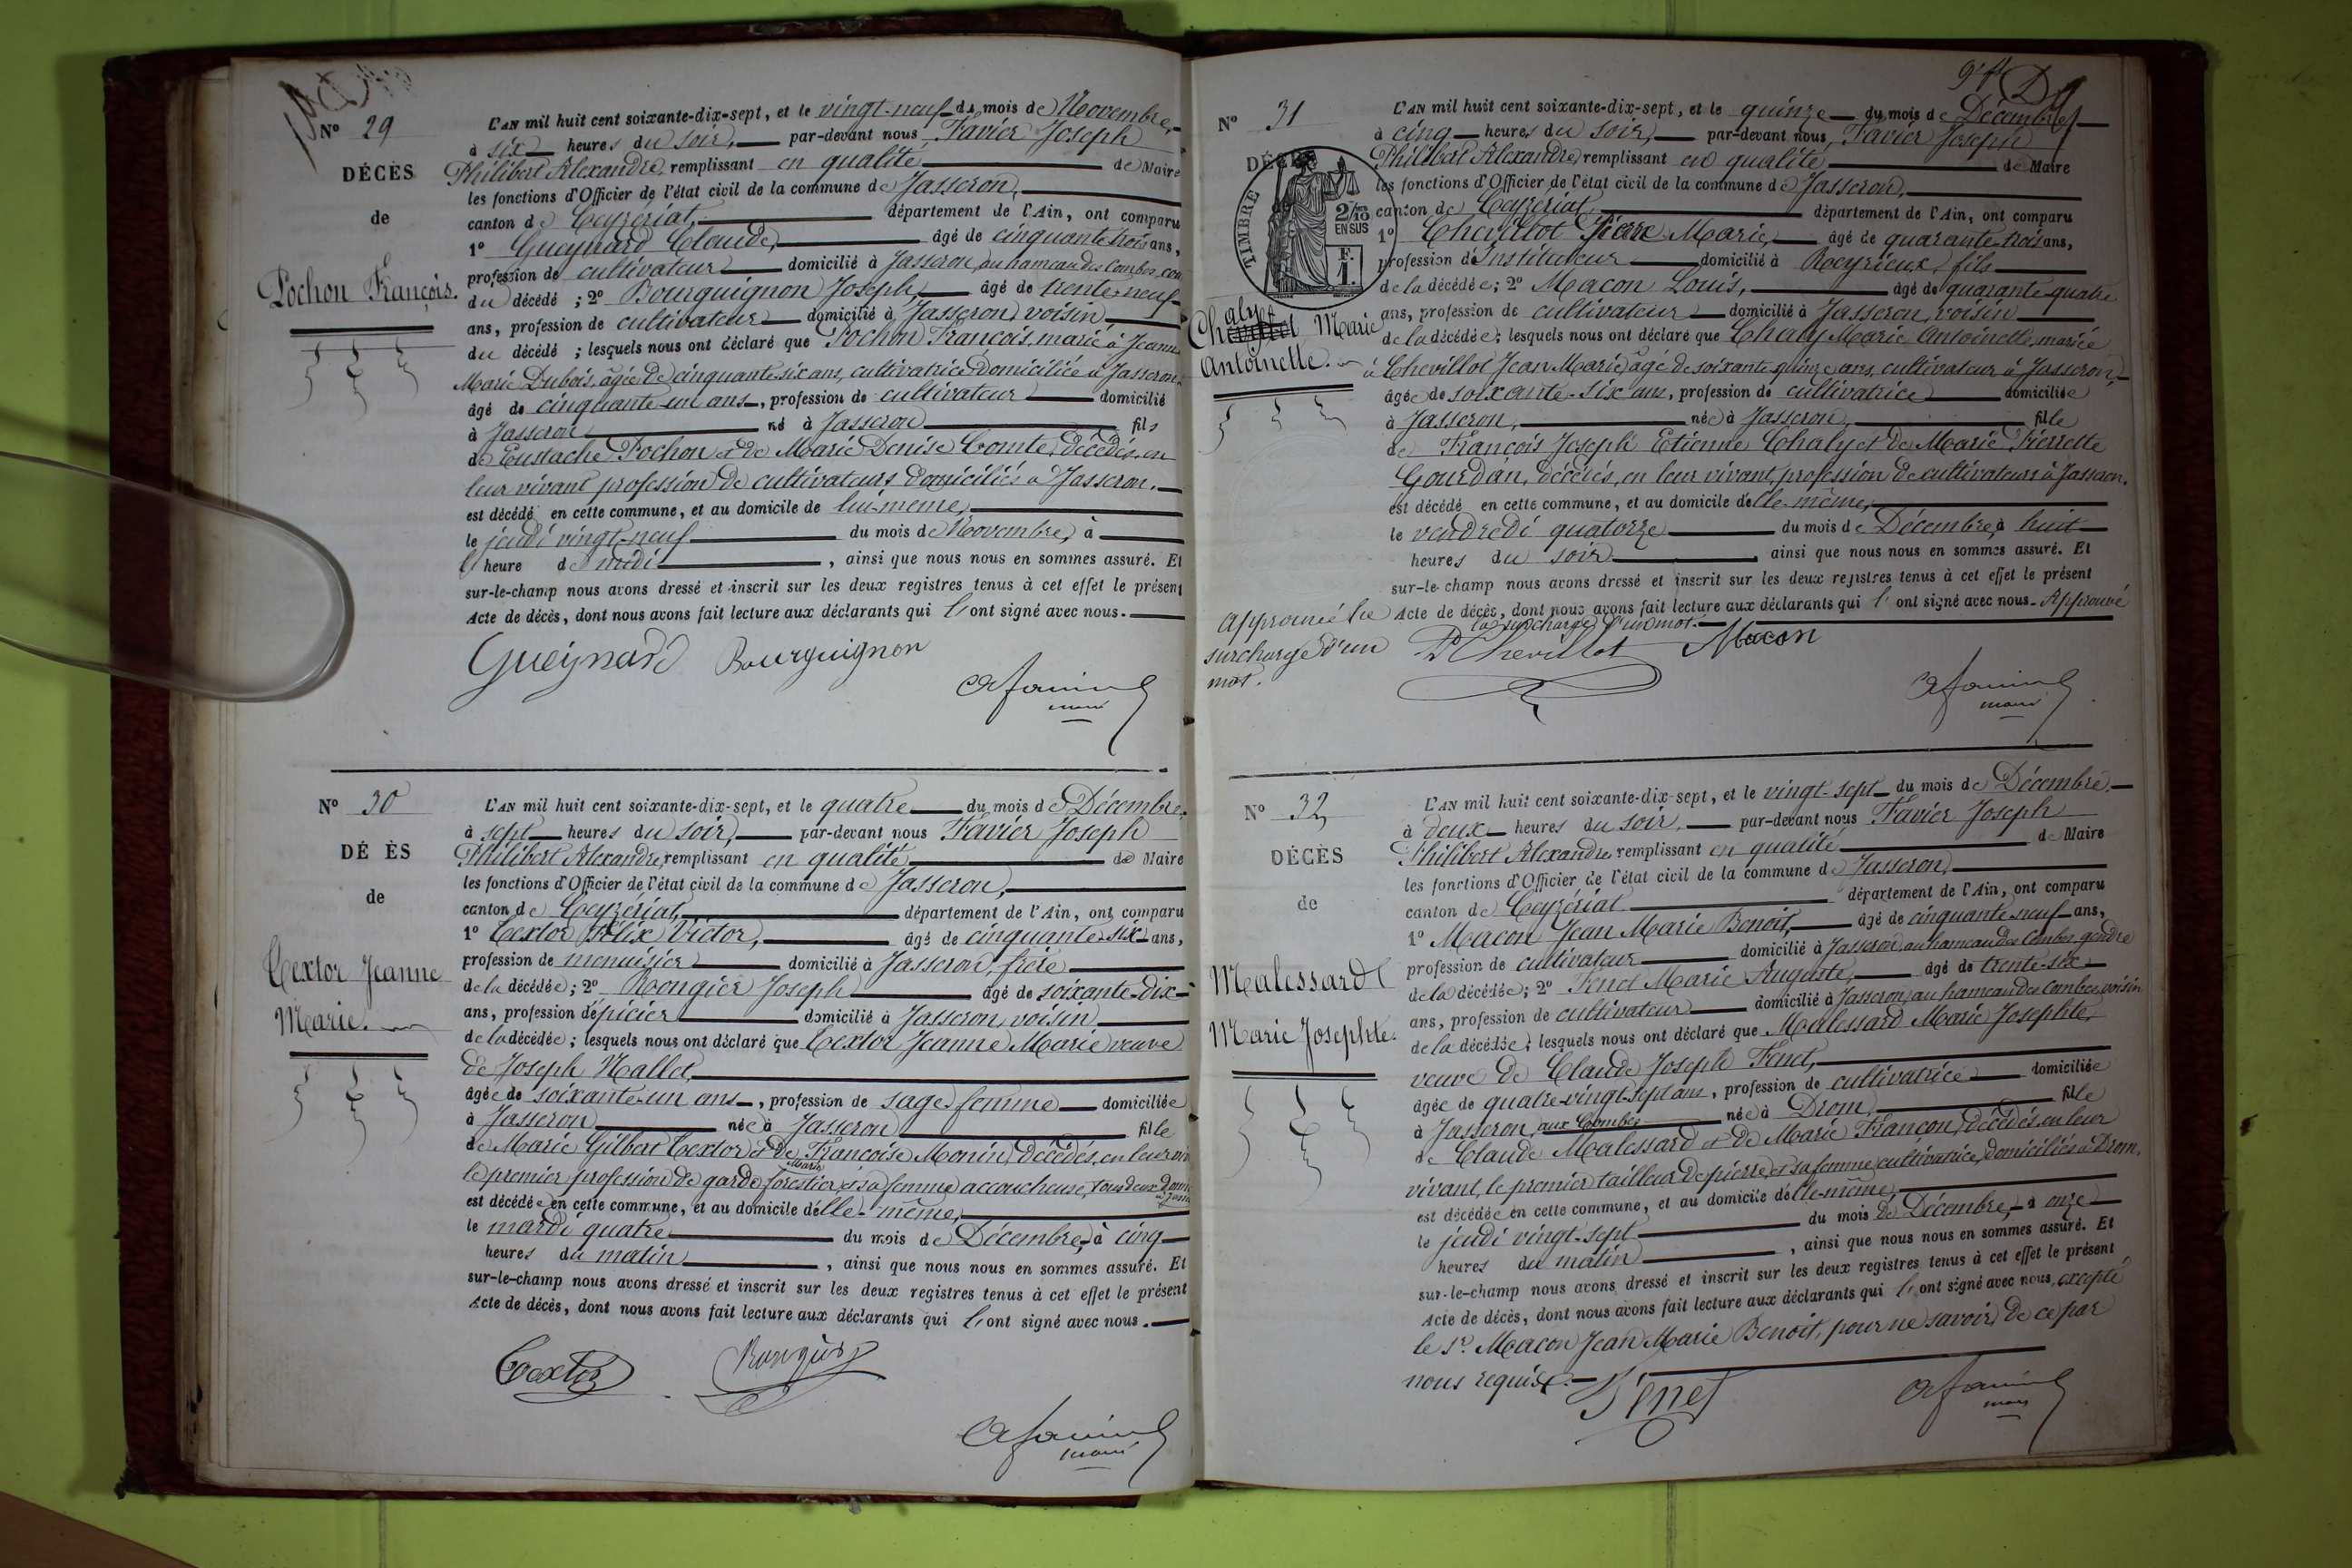 Nº 29
DÉCÈS
de
Pochon François.
L'AN mil huit cent soixante-dix-sept, et le vingt-neuf du mois de Novembre,
à six heures du soir, par-devant nous Favier Joseph
Philibert Alexandre, remplissant en qualité de Maire
les fonctions d'Officier de l'état civil de la commune de Jasseron,
canton de Ceyzériat, département de l'Ain, ont comparu
1º Gueynard Claude, âgé de cinquante-trois ans,
profession de cultivateur domicilié à Jasseron, au hameau des Combes,
du décédé ; 2º Bourguignon Joseph, âgé de trente-neuf
ans, profession de cultivateur domicilié à Jasseron, voisin
du décédé ; lesquels nous ont déclaré que Pochon François, marié à Jeanne
Marie Dubois, âgée de cinquante-six ans, cultivatrice domiciliée à Jasseron,
âgé de cinquante-un ans, profession de cultivateur domicilié
à Jasseron né à Jasseron fils
de Eustache Pochon et de Marie Denise Comte, décédés, en
leur vivant profession de cultivateurs domiciliés à Jasseron.
est décédé en cette commune, et au domicile de lui-même,
le jeudi vingt-neuf du mois de Novembre, à
l' heure de midi , ainsi que nous nous en sommes assuré. Et
sur-le-champ nous avons dressé et inscrit sur les deux registres tenus à cet effet le présent
Acte de décès, dont nous avons fait lecture aux déclarants qui l'ont signé avec nous.
Gueynard Bourguignon
maire
Nº 30
DÉ ÈS
de
Textor Jeanne
Marie.
L'AN mil huit cent soixante-dix-sept, et le quatre du mois de Décembre,
à sept heures du soir, par-devant nous Favier Joseph
Philibert Alexandre, remplissant en qualité de Maire
les fonctions d'Officier de l'état civil de la commune de Jasseron,
canton de Ceyzériat, département de l'Ain, ont comparu
1º Textor Félix Victor, âgé de cinquante-six ans,
profession de menuisier domicilié à Jasseron, frère
de la décédée ; 2º Rongier Joseph âgé de soixante-dix
ans, profession d'épicier domicilié à Jasseron, voisin
de la décédée ; lesquels nous ont déclaré que Textor Jeanne Marie veuve
de Joseph Nallet,
âgée de soixante-un ans, profession de sage-femme domiciliée
à Jasseron née à Jasseron fille
de Marie Gilbert Textor et de Françoise Marie Monin, décédés, en leur
le premier profession de garde forestier et sa femme accoucheuse, tous deux
est décédée en cette commune, et au domicile d'elle-même,
le mardi quatre du mois de Décembre, à cinq
heures du matin , ainsi que nous nous en sommes assuré. Et
sur-le-champ nous avons dressé et inscrit sur les deux registres tenus à cet effet le présent
Acte de décès, dont nous avons fait lecture aux déclarants qui l'ont signé avec nous.
Textor Rongier
maire
Nº 31
DÉ
TIMBRE
2/10
EN SUS
F.
1.
Chaly Marie
Antoinette.
L'AN mil huit cent soixante-dix-sept, et le quinze du mois de Décembre
à cinq heures du soir, par-devant nous, Favier Joseph
Philibert Alexandre, remplissant en qualité de Maire
les fonctions d'Officier de l'état civil de la commune de Jasseron,
canton de Ceyzériat, département de l'Ain, ont comparu
1º Chevillot Pierre Marie, âgé de quarante-trois ans,
profession d'Instituteur domicilié à Rceyrieux, fils
de la décédée ; 2º Macon Louis, âgé de quarante-quatre
ans, profession de cultivateur domicilié à Jasseron, voisin
de la décédée ; lesquels nous ont déclaré que Chaly Marie Antoinette, mariée
à Chevillot Jean Marie, âgé de soixante-quinze ans, cultivateur à Jasseron,
âgée de soixante-six ans, profession de cultivatrice domiciliée
à Jasseron, née à Jasseron, fille
de François Joseph Etienne Chaly et de Marie Pierrette
Gourdan, décédés, en leur vivant, profession de cultivateurs à Jasseron.
est décédé en cette commune, et au domicile d'elle-même,
le vendredi quatorze du mois de Décembre, à huit
heures du soir , ainsi que nous nous en sommes assuré. Et
sur-le-champ nous avons dressé et inscrit sur les deux registres tenus à cet effet le présent
Acte de décès, dont nous avons fait lecture aux déclarants qui l'ont signé avec nous. Approuvé
la surcharge d'un mot.
Approuvé la
surcharge d'un
mot.
P. Chevillot Macon
maire
Nº 32
DÉCÈS
de
Malessard
Marie Josephte.
L'AN mil huit cent soixante-dix-sept, et le vingt-sept du mois de Décembre,
à deux heures du soir, par-devant nous Favier Joseph
Philibert Alexandre, remplissant en qualité de Maire
les fonctions d'Officier de l'état civil de la commune de Jasseron,
canton de Ceyzériat département de l'Ain, ont comparu
1º Macon Jean Marie Benoit, âgé de cinquante-neuf ans,
profession de cultivateur domicilié à Jasseron, au hameau des Combes, gendre
de la décédée ; 2º Fenet Marie Auguste, âgé de trente-six
ans, profession de cultivateur domicilié à Jasseron, au hameau des Combes, voisin
de la décédée ; lesquels nous ont déclaré que Malessard Marie Josephte,
veuve de Claude Joseph Fenet,
âgée de quatre-vingt-sept ans, profession de cultivatrice domiciliée
à Jasseron, aux Combes née à Drom, fille
de Claude Malessard et de Marie Françon, décédés, en leur
vivant, le premier tailleur de pierre, et sa femme cultivatrice, domiciliés à Drom,
est décédée en cette commune, et au domicile d'elle-même,
le jeudi vingt-sept du mois de Décembre, à onze
heures du matin , ainsi que nous nous en sommes assuré. Et
sur-le-champ nous avons dressé et inscrit sur les deux registres tenus à cet effet le présent
Acte de décès, dont nous avons fait lecture aux déclarants qui l'ont signé avec nous, excepté
le Sr. Macon Jean Marie Benoit, pour ne savoir, de ce par
nous requis.
Fenet
maire